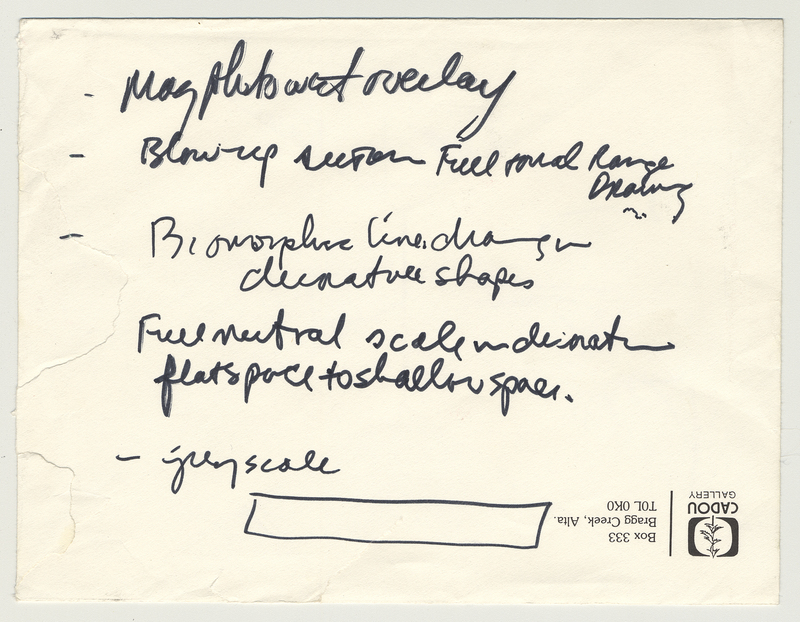 - Mag photo overlay
- Blow-up section Full tonal Range
Drawing
- Biomorphic line drawing in
decorative shapes
Full neutral scale in decorative
flat space to shallow space.
- grey scale
CADOU
GALLERY
Box 333
Bragg Creek, Alta.
T0L 0K0